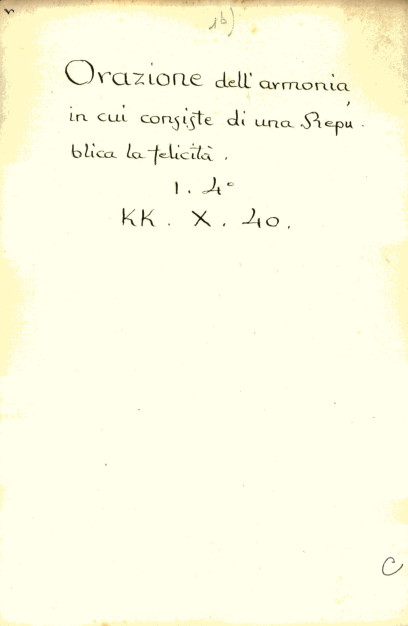 1b)
Orazione dell' armonia,
in cui consiste di una Repu-
blica la felicità.
1. 4°
KK. X. 40.
C